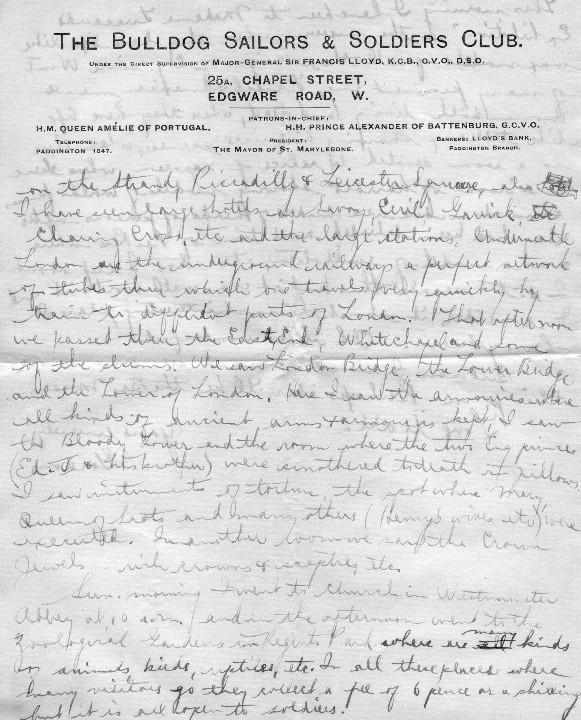 THE BULLDOG SAILORS & SOLDIERS CLUB.
UNDER THE DIRECT SUPERVISION OF MAJOR-GENERAL SIR FRANCIS LLOYD, K.C.B., C.V.O., D.S.O.
25A, CHAPEL STREET,
EDGWARE ROAD, W.
PATRONS-IN-CHIEF:
H.M. QUEEN AMÉLIE OF PORTUGAL.
H.H. PRINCE ALEXANDER OF BATTENBURG, G.C.V.O.
TELEPHONE:
PADDINGTON 1847.
PRESIDENT:
THE MAYOR OF ST. MARYLEBONE.
BANKERS: LLOYD'S BANK,
PADDINGTON BRANCH.
on the Strand, Piccadilly & Leicester Square, also
I have seen large hotels as Savoy, Cecil, Garrick,
Charing Cross, etc and the large stations. Underneath
London are the underground railways a perfect network
of tubes thru which one travels very quickly by
train to different parts of London. That afternoon
we passed thru the East End, Whitechapel and some
of the slums. We saw London Bridge the Tower Bridge
and the Tower of London. Here I saw the armouries where
all kinds of ancient arms & armour is kept, I saw
the Bloody Tower and the room where the two Eng princes
(Ed. V & his brother) were smothered to death in pillows,
I saw instruments of torture, the spot where Mary
Queen of Scots and many others (Henry's wives etc) were
executed. In another room we saw the Crown
Jewels with crowns & sceptres, etc.
Sun. morning I went to church in Westminster
Abbey at 10 a.m. and in the afternoon went to the
Zoological Gardens in Regents Park where are many kinds
of animals, birds, reptiles, etc. In all these places where
many visitors go they collect a fee of 6 pence or a shilling
but it is all open to soldiers.